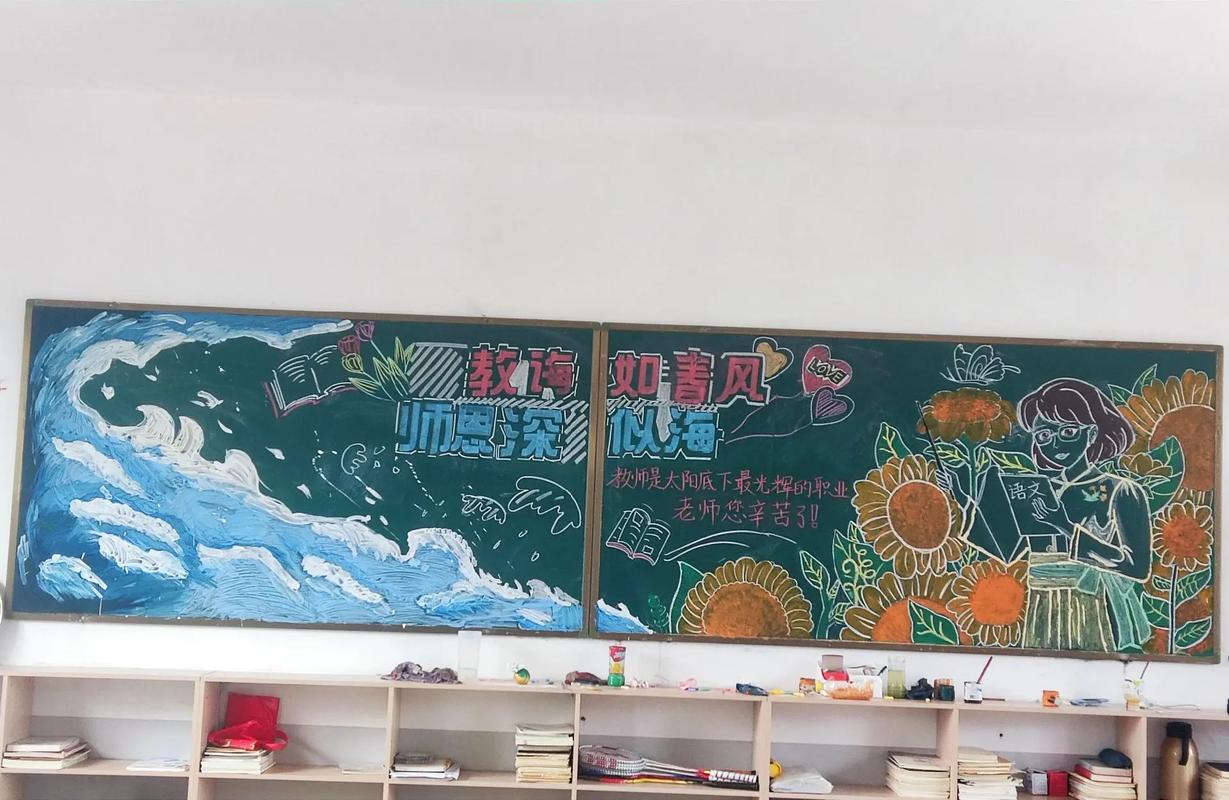 教诲如善风
师恩深似海
LOVE
教师是太阳底下最光辉的职业
老师您辛苦了!!
语文